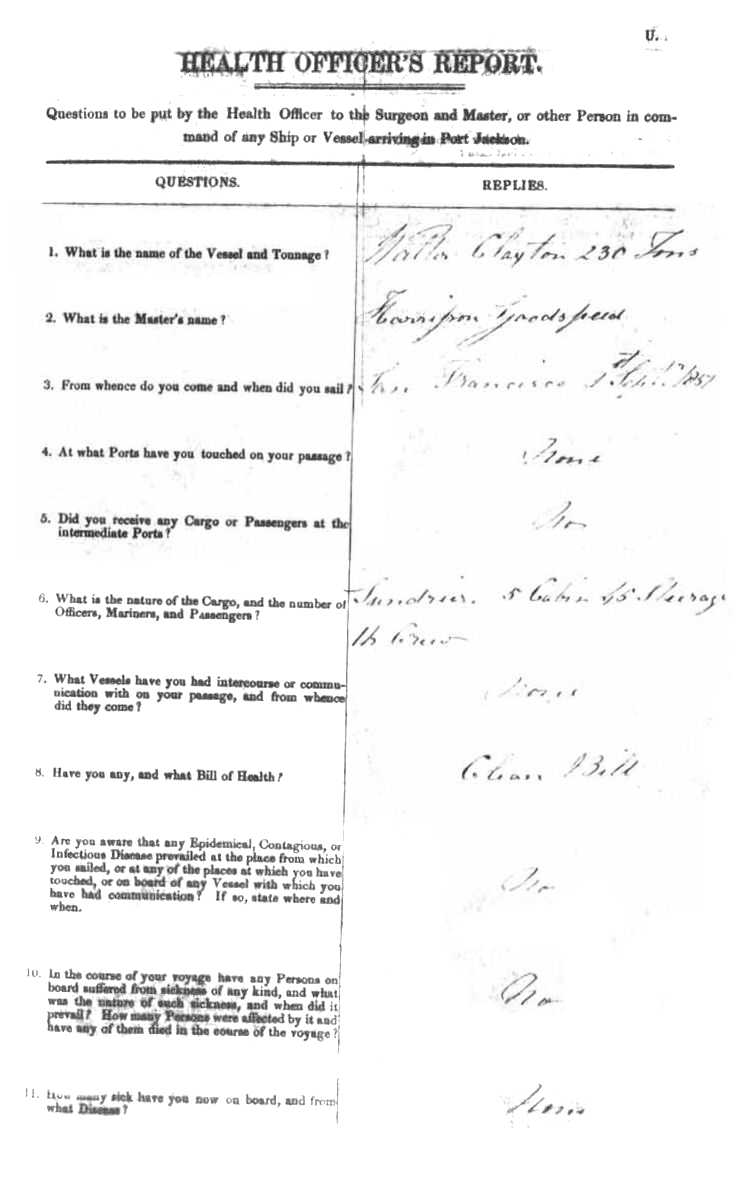 U.
HEALTH OFFICER'S REPORT.
Questions to be put by the Health Officer to the Surgeon and Master, or other Person in com-
mand of any Ship or Vessel arriving in Port Jackson.
QUESTIONS.
REPLIES.
1. What is the name of the Vessel and Tonnage?
Walter Clayton 230 Tons
2. What is the Master's name?
Harrison Goodspeed
3. From whence do you come and when did you sail?
San Francisco 1st Sept. 1851
4. At what Ports have you touched on your passage?
None
5. Did you receive any Cargo or Passengers at the
intermediate Ports?
No
6. What is the nature of the Cargo, and the number of
Officers, Mariners, and Passengers?
Sundries. 5 Cabin 45 Steerage
Crew
7. What Vessels have you had intercourse or commu-
nication with on your passage, and from whence
did they come?
None
8. Have you any, and what Bill of Health?
Clean Bill
9. Are you aware that any Epidemical, Contagious, or
Infectious Disease prevailed at the place from which
you sailed, or at any of the places at which you have
touched, or on board of any Vessel with which you
have had communication? If so, state where and
when.
No
10. In the course of your voyage have any Persons on
board suffered from sickness of any kind, and what
was the nature of such sickness, and when did it
prevail? How many Persons were affected by it and
have any of them died in the course of the voyage?
No
11. How many sick have you now on board, and from
what Disease?
None